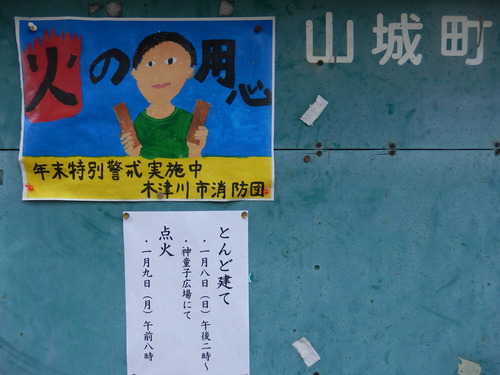 火の用心
年末特別警戒実施中
木津川市消防団
山城町
とんど建て
・一月八日(日)午後二時~
・神童子広場にて
点火
・一月九日(月)午前八時